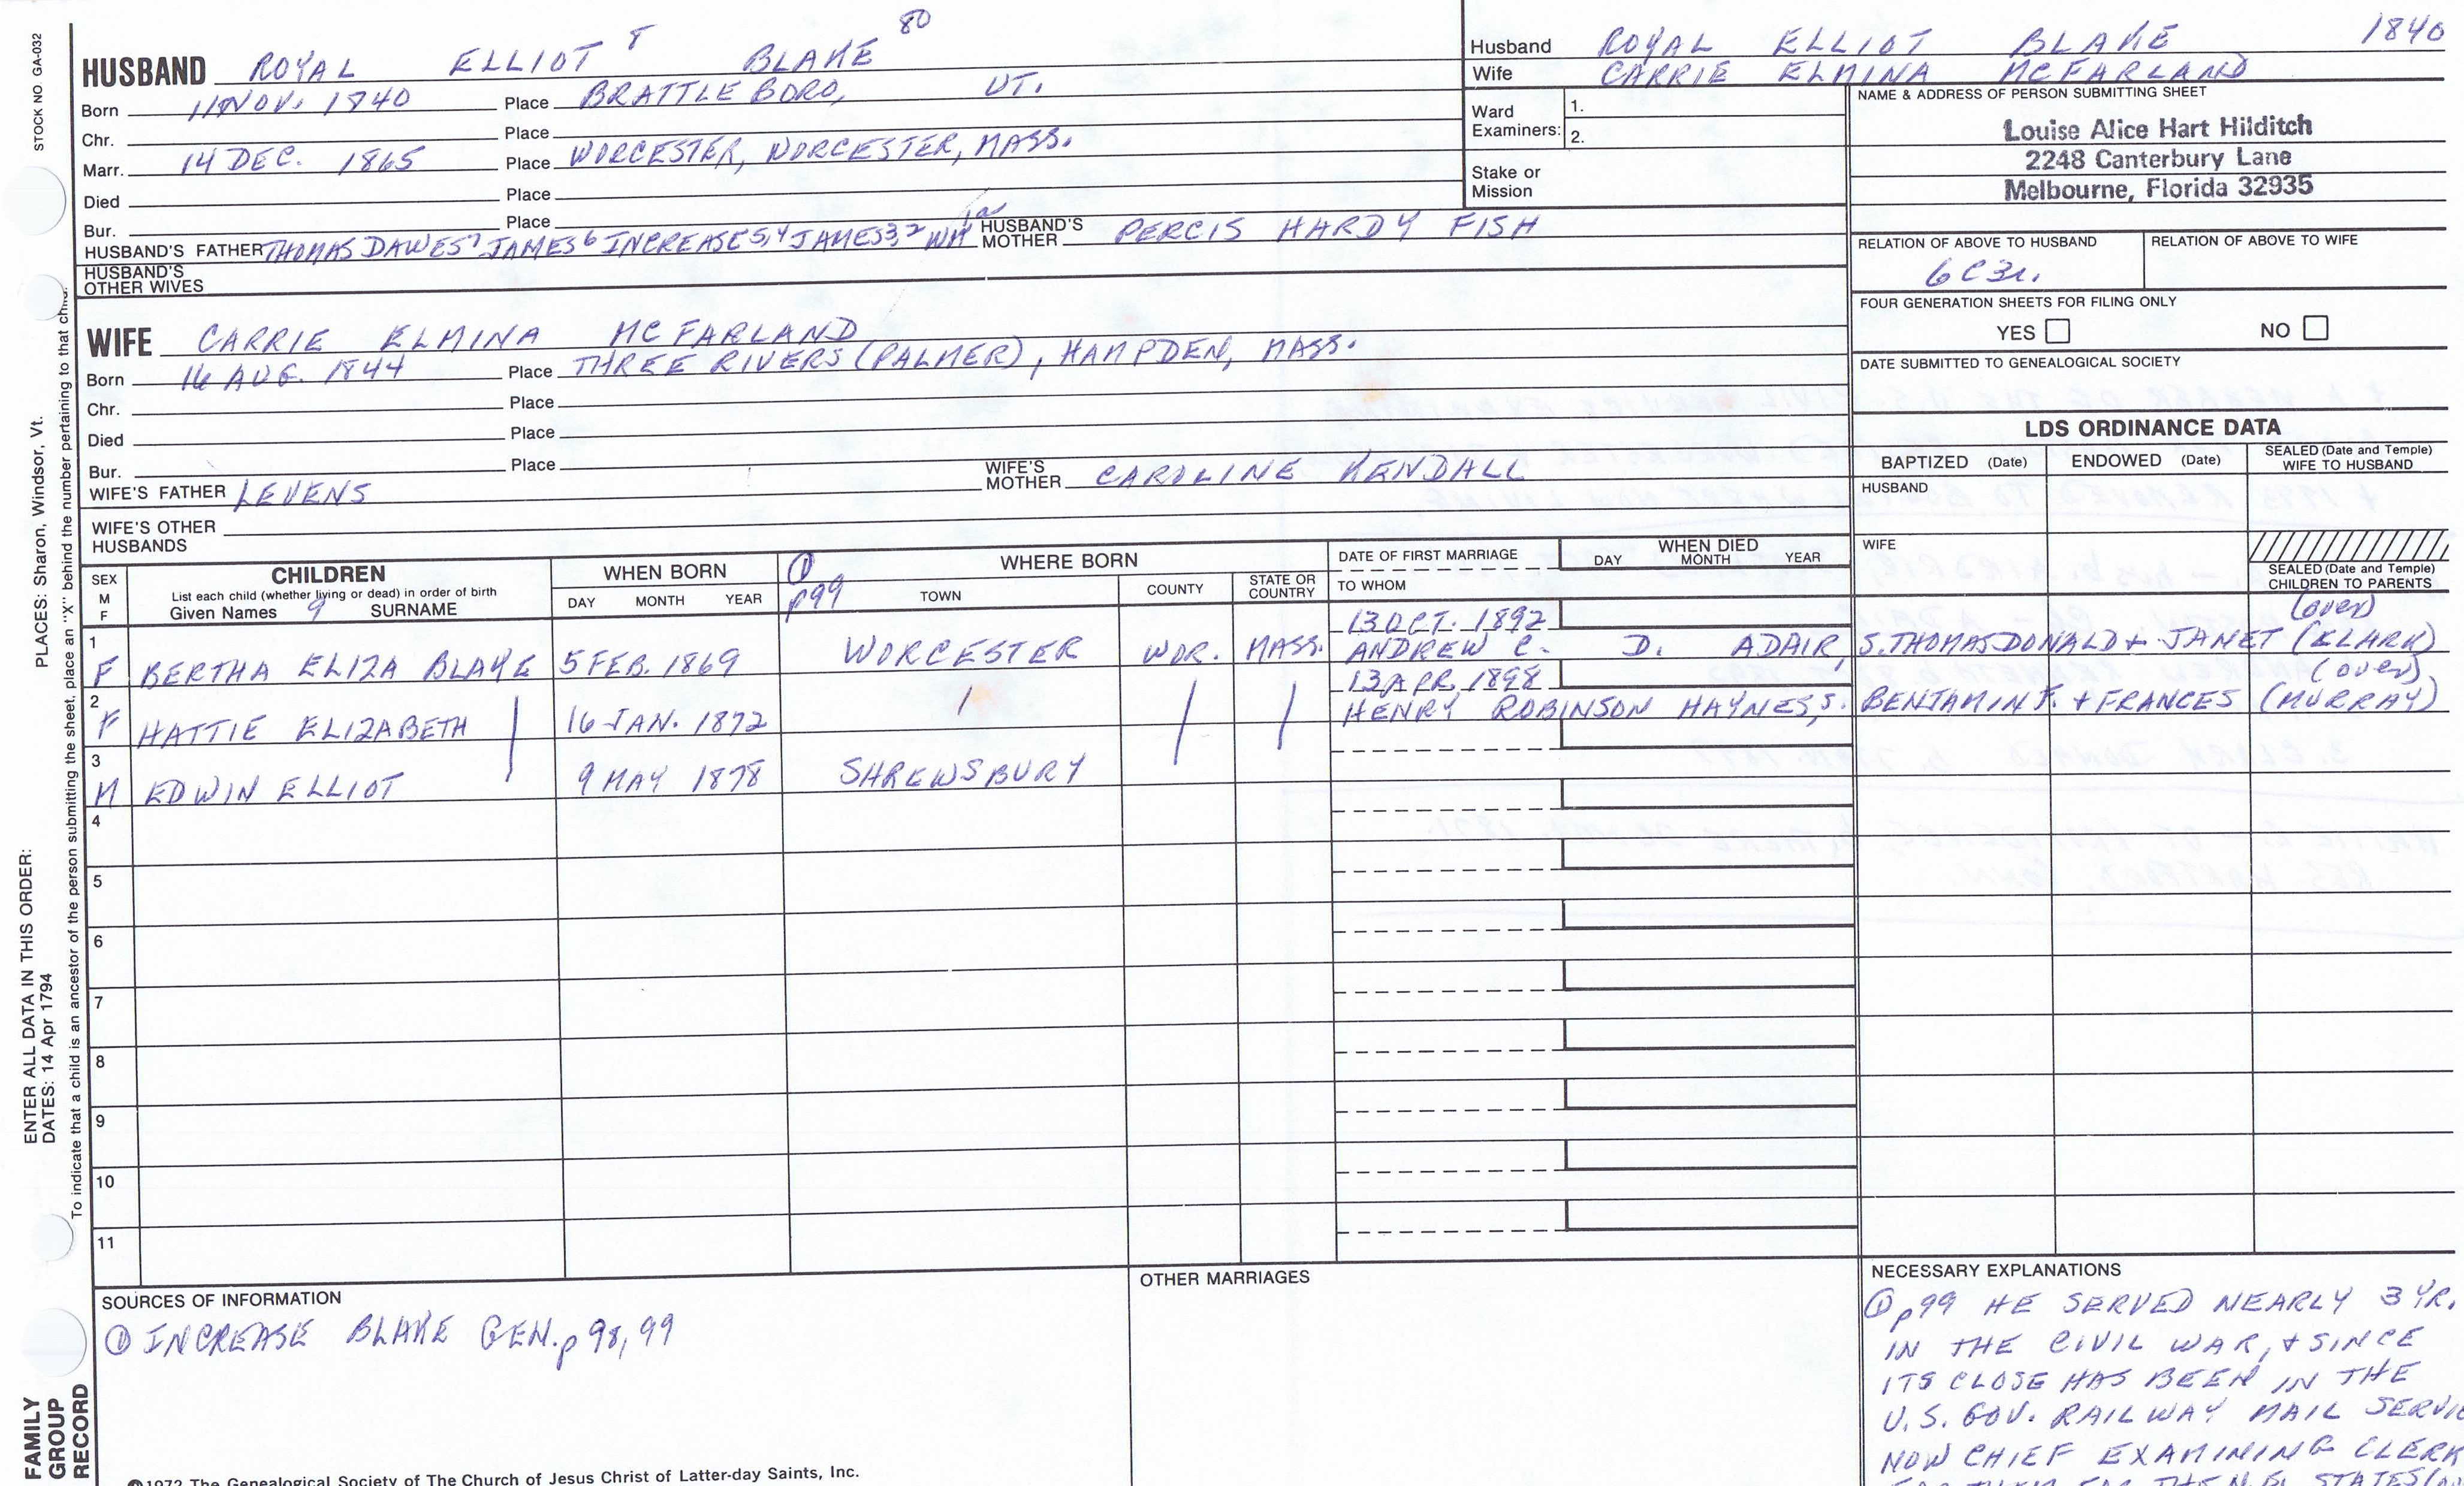 STOCK NO. GA-032
PLACES: Sharon, Windsor, Vt.
ENTER ALL DATA IN THIS ORDER:
DATES: 14 Apr 1794
To indicate that a child is an ancestor of the person submitting the sheet, place an "X" behind the number pertaining to that child.
FAMILY
GROUP
RECORD
HUSBAND ROYAL ELLIOT 8 BLAKE 80
Born 11 NOV. 1840 Place BRATTLEBORO, VT.
Chr. Place
Marr. 14 DEC. 1865 Place WORCESTER, WORCESTER, MASS.
Died Place
Bur. Place
HUSBAND'S FATHER THOMAS DAWES 7 JAMES 6 INCREASE 5,4 JAMES 3,2 WM 1a HUSBAND'S MOTHER PERCIS HARDY FISH
HUSBAND'S OTHER WIVES
WIFE CARRIE ELMINA MCFARLAND
Born 16 AUG. 1844 Place THREE RIVERS (PALMER), HAMPDEN, MASS.
Chr. Place
Died Place
Bur. Place
WIFE'S FATHER LEVENS WIFE'S MOTHER CAROLINE KENDALL
WIFE'S OTHER HUSBANDS
Husband ROYAL ELLIOT BLAKE 1840
Wife CARRIE ELMINA MCFARLAND
Ward Examiners: 1.
2.
Stake or Mission
NAME & ADDRESS OF PERSON SUBMITTING SHEET
Louise Alice Hart Hilditch
2248 Canterbury Lane
Melbourne, Florida 32935
RELATION OF ABOVE TO HUSBAND RELATION OF ABOVE TO WIFE
6C3r.
FOUR GENERATION SHEETS FOR FILING ONLY
YES NO
DATE SUBMITTED TO GENEALOGICAL SOCIETY
LDS ORDINANCE DATA
BAPTIZED (Date) ENDOWED (Date) SEALED (Date and Temple) WIFE TO HUSBAND
HUSBAND
WIFE
SEALED (Date and Temple) CHILDREN TO PARENTS
SEX M F CHILDREN
List each child (whether living or dead) in order of birth
Given Names 9 SURNAME
WHEN BORN
DAY MONTH YEAR
① p99 WHERE BORN
TOWN COUNTY STATE OR COUNTRY
DATE OF FIRST MARRIAGE
TO WHOM
WHEN DIED
DAY MONTH YEAR
13 OCT. 1892 (over)
1 F BERTHA ELIZA BLAKE 5 FEB. 1869 WORCESTER WOR. MASS. ANDREW C. D. ADAIR, S. THOMAS DONALD + JANET (CLARK)
13 APR. 1898 (over)
2 F HATTIE ELIZABETH 16 JAN. 1872 HENRY ROBINSON HAYNES, S. BENJAMIN F. + FRANCES (MURRAY)
3 M EDWIN ELLIOT 9 MAY 1878 SHREWSBURY
4
5
6
7
8
9
10
11
SOURCES OF INFORMATION
① INCREASE BLAKE GEN. p 98, 99
OTHER MARRIAGES
NECESSARY EXPLANATIONS
① p99 HE SERVED NEARLY 3 YR.
IN THE CIVIL WAR, + SINCE
ITS CLOSE HAS BEEN IN THE
U.S. GOV. RAILWAY MAIL
NOW CHIEF EXAMINING CLERK
©1972 The Genealogical Society of The Church of Jesus Christ of Latter-day Saints, Inc.